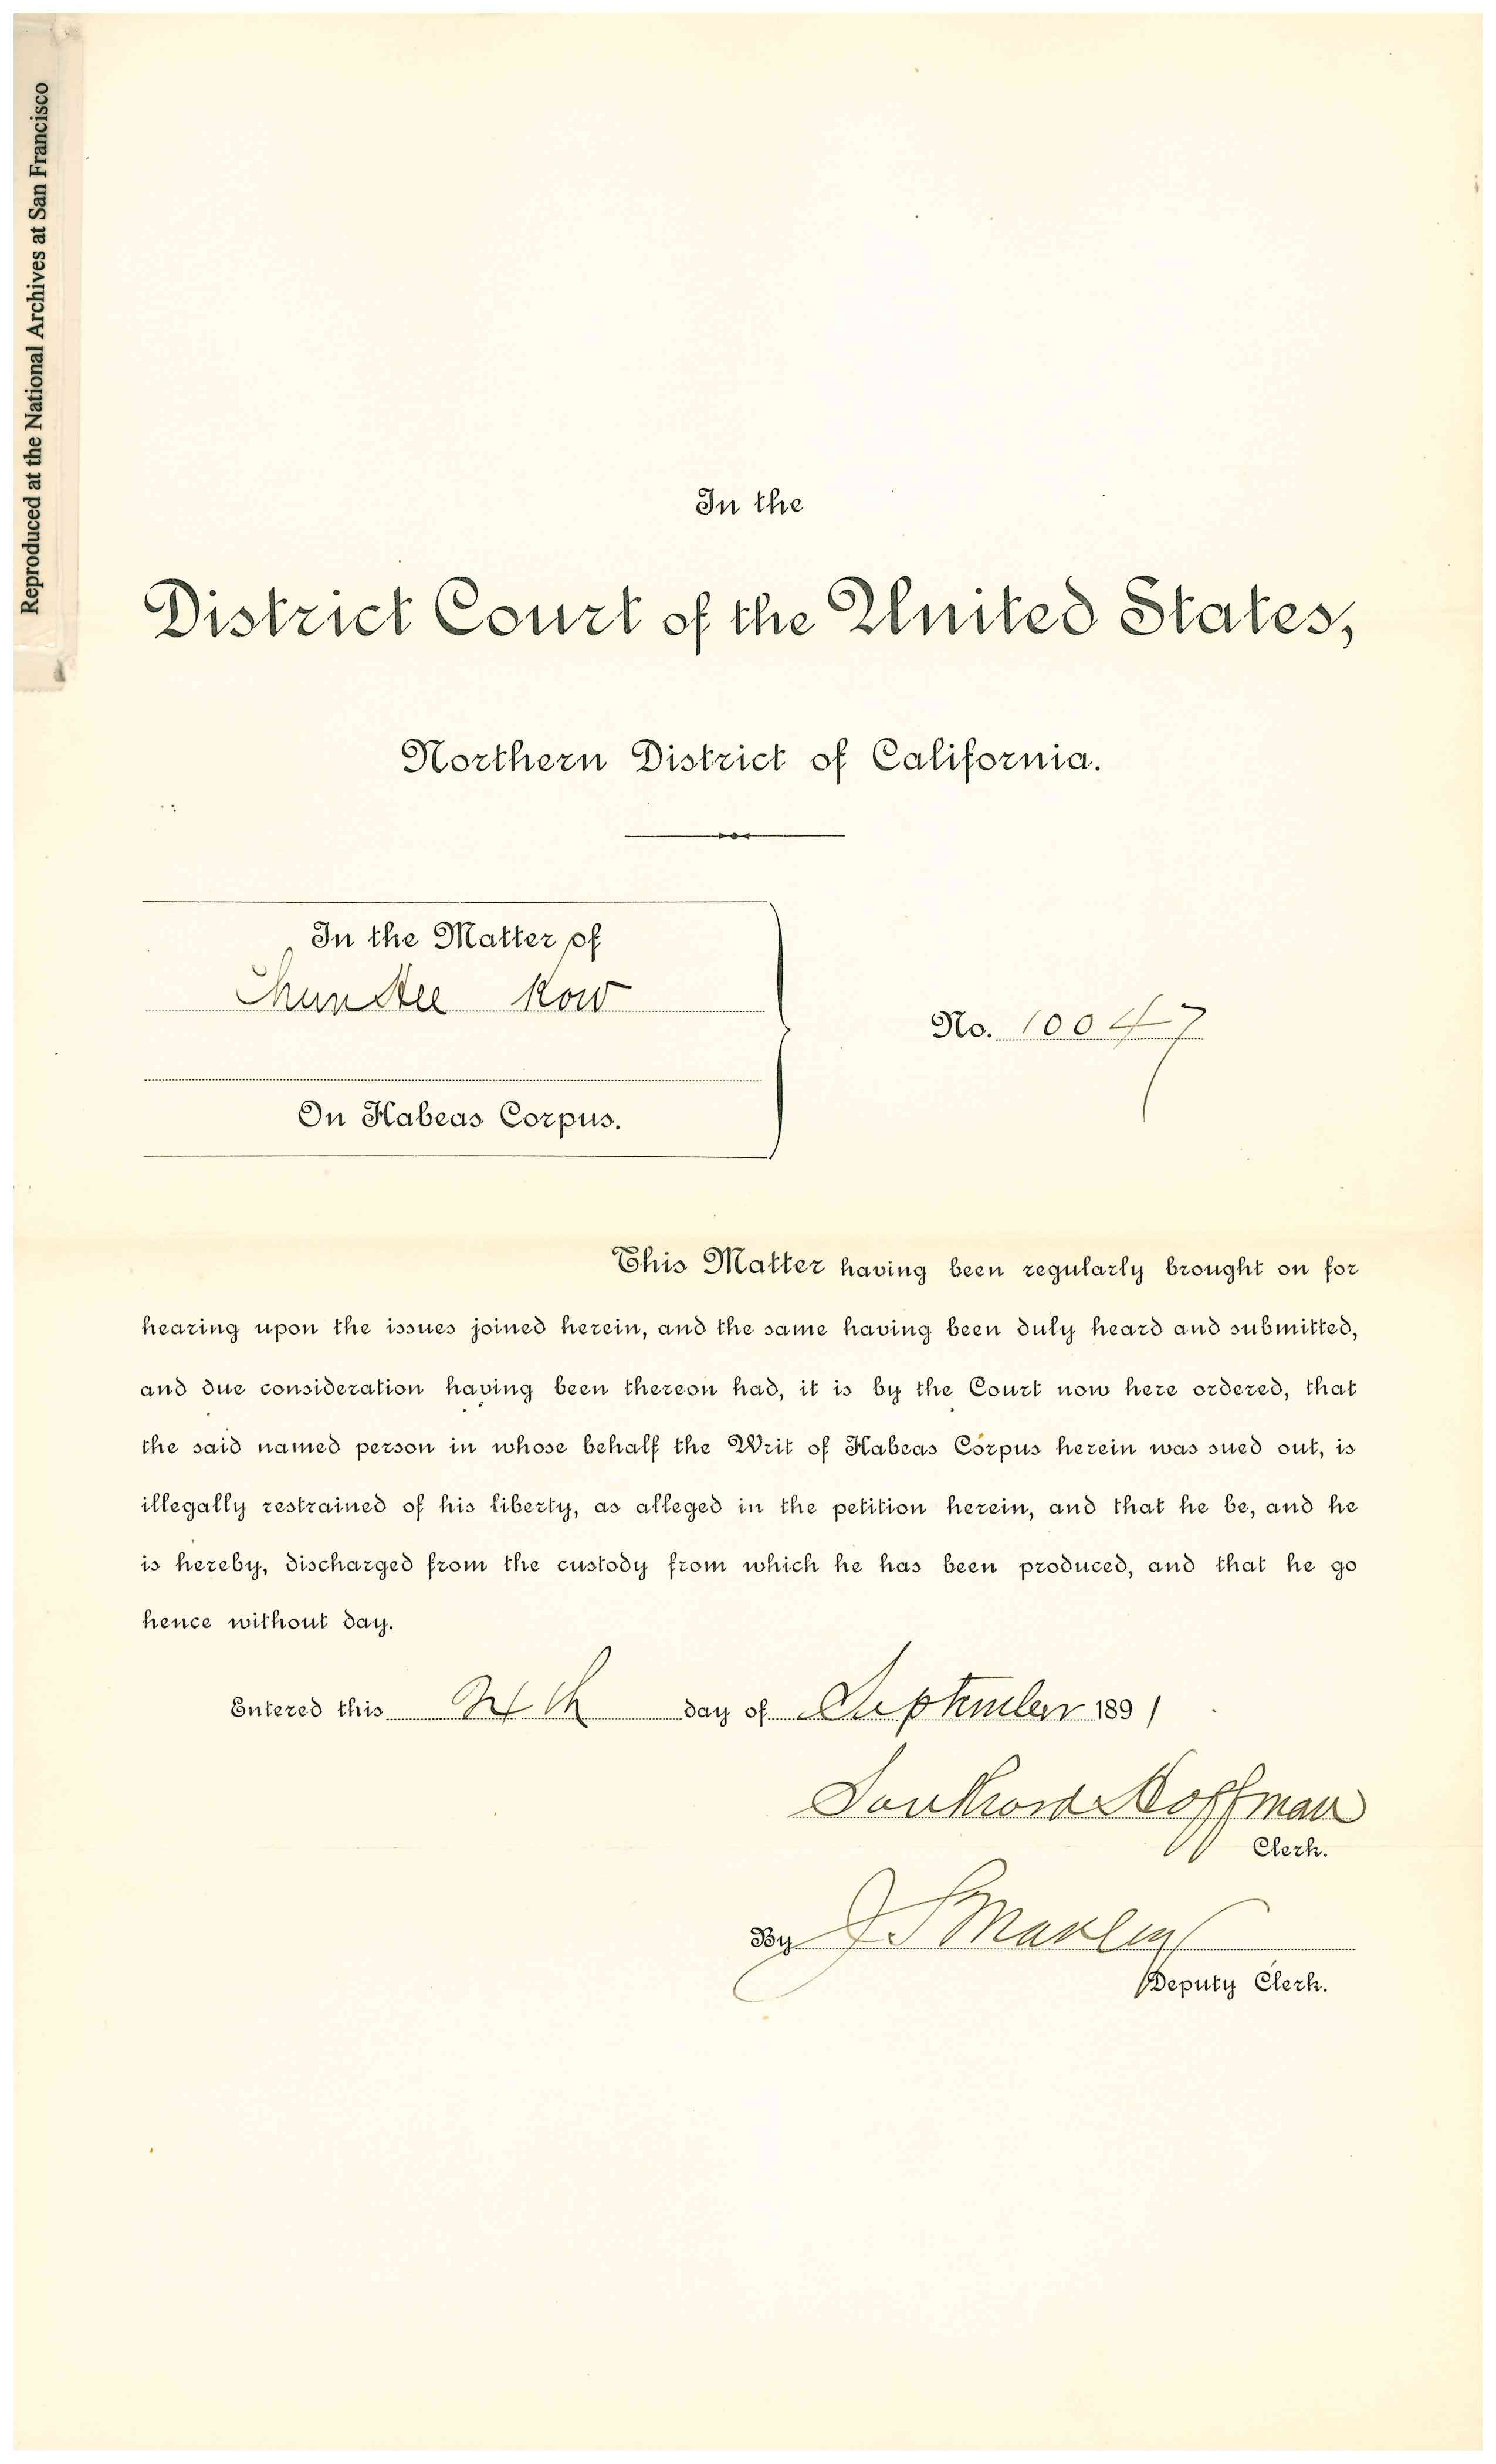 Reproduced at the National Archives at San Francisco
In the
District Court of the United States,
Northern District of California.
In the Matter of
Chun Hee Kow
No. 10047
On Habeas Corpus.
This Matter having been regularly brought on for
hearing upon the issues joined herein, and the same having been duly heard and submitted,
and due consideration having been thereon had, it is by the Court now here ordered, that
the said named person in whose behalf the Writ of Habeas Corpus herein was sued out, is
illegally restrained of his liberty, as alleged in the petition herein, and that he be, and he
is hereby, discharged from the custody from which he has been produced, and that he go
hence without day.
Entered this day of September 1891
Southard Hoffman
Clerk.
By J. S. Manley
Deputy Clerk.